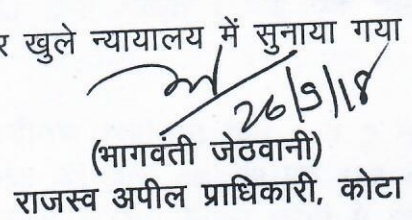 र खुले न्यायालय में सुनाया गया
26/9/18
(भागवंती जेठवानी)
राजस्व अपील प्राधिकारी, कोटा